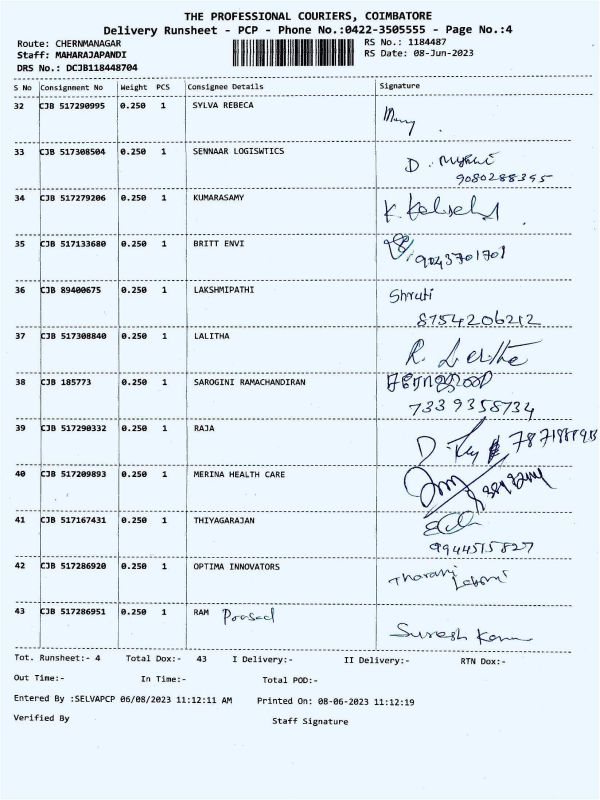 THE PROFESSIONAL COURIERS, COIMBATORE
Delivery Runsheet - PCP - Phone No.:0422-3505555 - Page No.:4
Route: CHERNMANAGAR RS No.: 1184487
Staff: MAHARAJAPANDI RS Date: 08-Jun-2023
DRS No.: DCJB118448704
S No Consignment No Weight PCS Consignee Details Signature
32 CJB 517290995 0.250 1 SYLVA REBECA
33 CJB 517308504 0.250 1 SENNAAR LOGISWTICS
D.
9080288395
34 CJB 517279206 0.250 1 KUMARASAMY
K.
35 CJB 517133680 0.250 1 BRITT ENVI
9043701701
36 CJB 89400675 0.250 1 LAKSHMIPATHI Shruti
8754206212
37 CJB 517308840 0.250 1 LALITHA
R.
38 CJB 185773 0.250 1 SAROGINI RAMACHANDIRAN
7339358734
39 CJB 517290332 0.250 1 RAJA
D.
40 CJB 517209893 0.250 1 MERINA HEALTH CARE
41 CJB 517167431 0.250 1 THIYAGARAJAN
9944515827
42 CJB 517286920 0.250 1 OPTIMA INNOVATORS Tharani
43 CJB 517286951 0.250 1 RAM Prasad
Suresh
Tot. Runsheet:- 4 Total Dox:- 43 I Delivery:- II Delivery:- RTN Dox:-
Out Time:- In Time:- Total POD:-
Entered By :SELVAPCP 06/08/2023 11:12:11 AM Printed On: 08-06-2023 11:12:19
Verified By Staff Signature